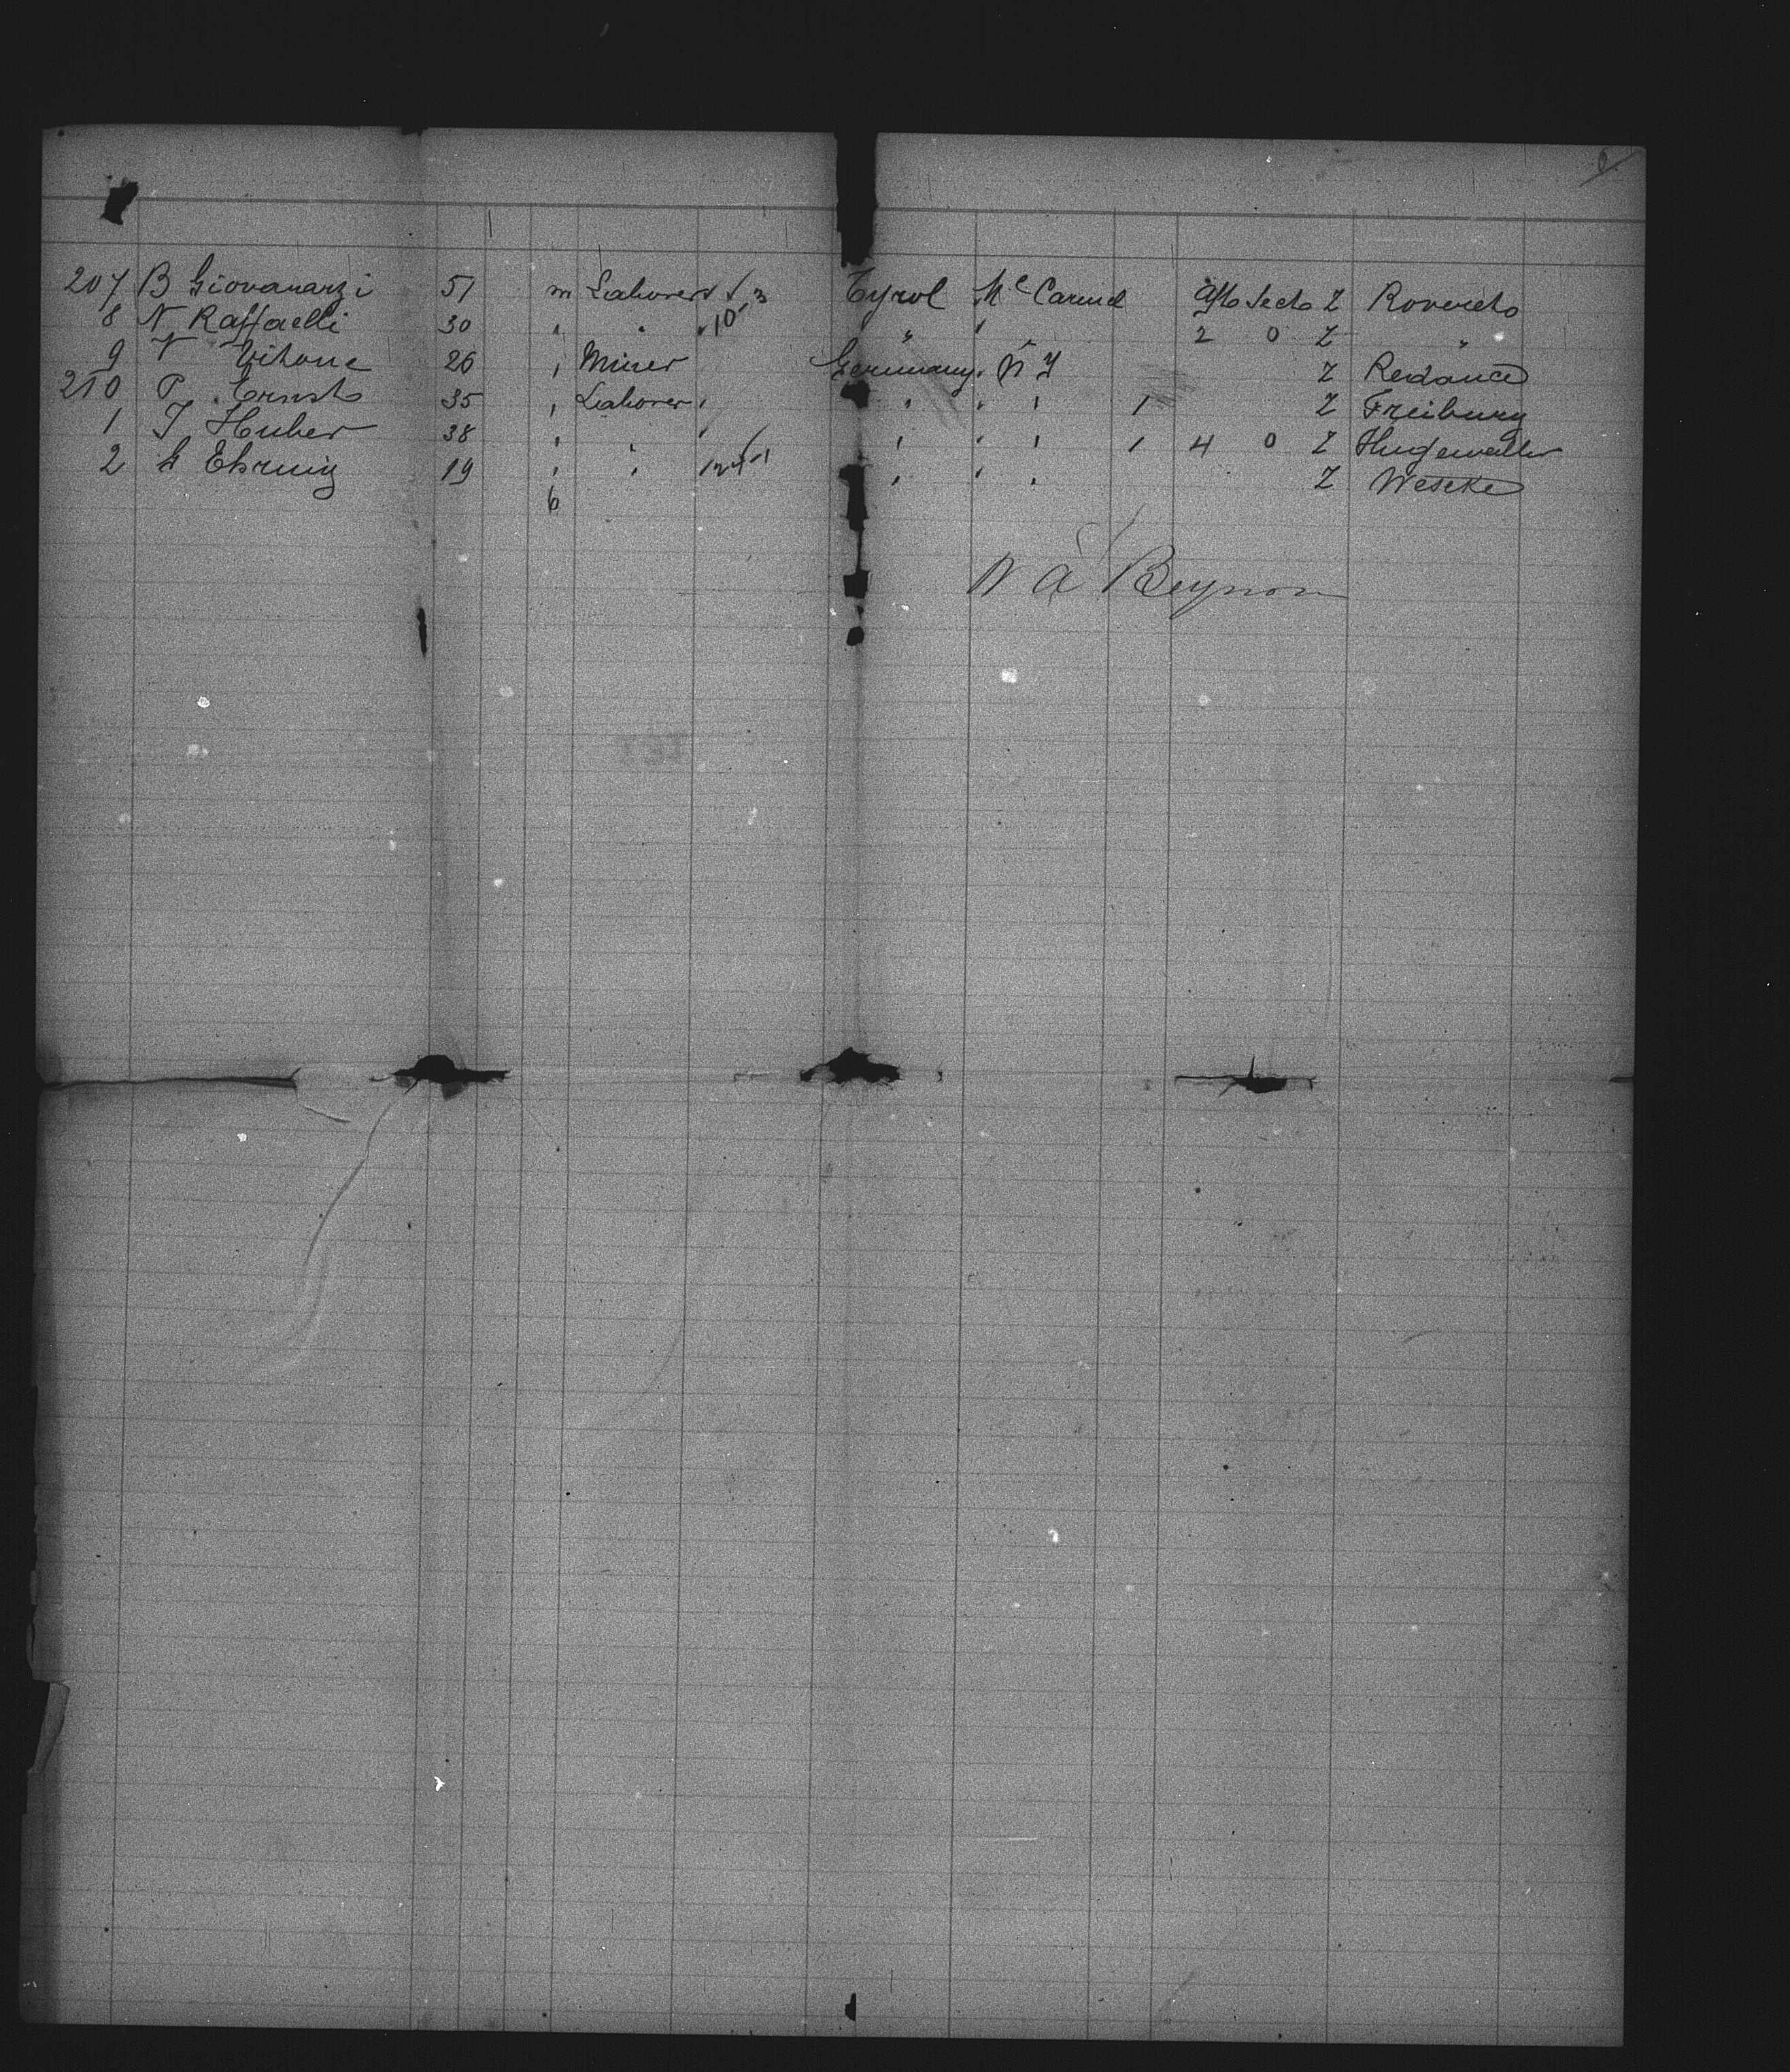 207 B Giovanarzi 51 m Laborer √ 3 Tyrol Mc Carmel Aft Sect Z Rovereto
8 N Raffaelli 30 " " 10 " " 2 0 Z "
9 V Vitone 26 " Miner Germany " N Y Z Redance
210 P Ernst 35 " Laborer " " " " 1 Z Freiburg
1 J Huber 38 " " " " " " 1 4 0 Z
2 G 19 " " " " " Z Weseke
6
Beynon